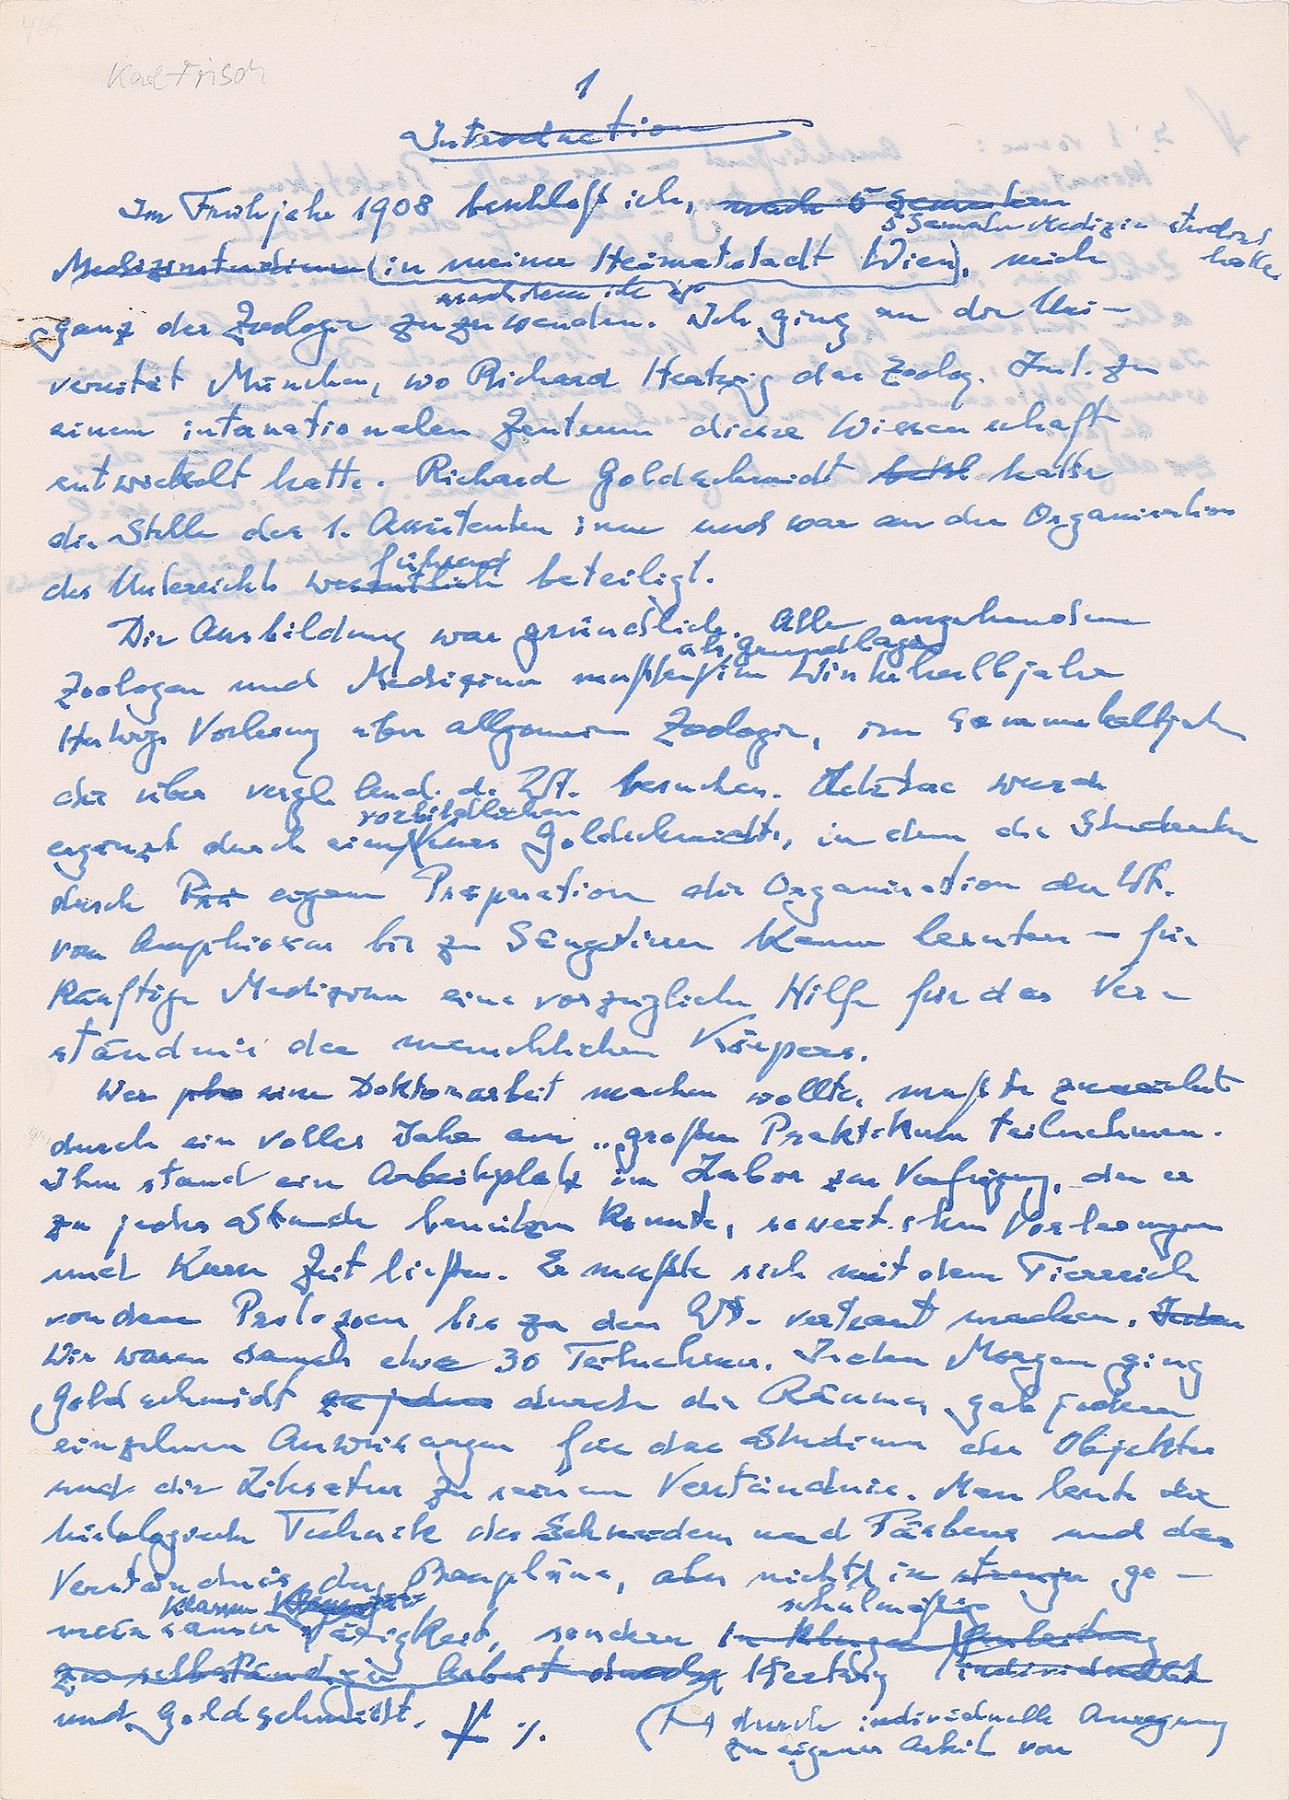 Karl Frisch
1
Introduction
Im Frühjahr 1908 beschloß ich, nach 5 Semestern
5 Semester Medizin studiert
Medizinstudium (in meiner Heimatstadt Wien), mich hatte
nachdem ich
ganz der Zoologie zuzuwenden. Ich ging an die Uni-
versität München, wo Richard Hertwig das Zoolog. Inst. zu
einem internationalen Zentrum dieser Wissenschaft
entwickelt hatte. Richard Goldschmidt hatte
die Stelle des 1. Assistenten inne und war an der Organisation
führend
des Unterrichts wesentlich beteiligt.
Die Ausbildung war gründlich. Alle angehenden
als Grundlage
Zoologen und Mediziner mußten im Winterhalbjahr
Hertwigs Vorlesung über allgemeine Zoologie, im Sommerhalbjahr
die über vergleichend. d. besuchen. Letztere wurde
vorbildlichen
ergänzt durch einen Kurs Goldschmidts, in dem die Studenten
durch Prä eigene Präparation die Organisation der Wt.
von Amphioxus bis zu Säugetieren kennen lernten – für
künftige Mediziner eine vorzügliche Hilfe für das Ver-
ständnis des menschlichen Körpers.
Wer eine Doktorarbeit machen wollte, mußte zunächst
durch ein volles Jahr am „großen Praktikum teilnehmen.
Ihm stand ein Arbeitsplatz im Labor zur Verfügung, den er
zu jeder Stunde benützen konnte, soweit ihm Vorlesungen
und Kurse Zeit ließen. Er mußte sich mit dem Tierreich
von den Protozoen bis zu den Wt. vertraut machen. Jeden
Wir waren damals etwa 30 Teilnehmer. Jeden Morgen ging
Goldschmidt zu jedem durch die Räume, gab jedem
einzelnen Anweisungen für das Studium der Objekte
und die Literatur zu seinem Verständnis. Man lernte die
histologische Technik des Schneidens und Färbens und das
Verständnis der Baupläne, aber nicht in strenger ge-
schulmäßig
meinsamer Tätigkeit, sondern in kluger Anleitung
zu selbständiger Arbeit durch Hertwig individuelle
und Goldschmidt. ⁒
durch individuelle Anregung
zu eigener Arbeit von